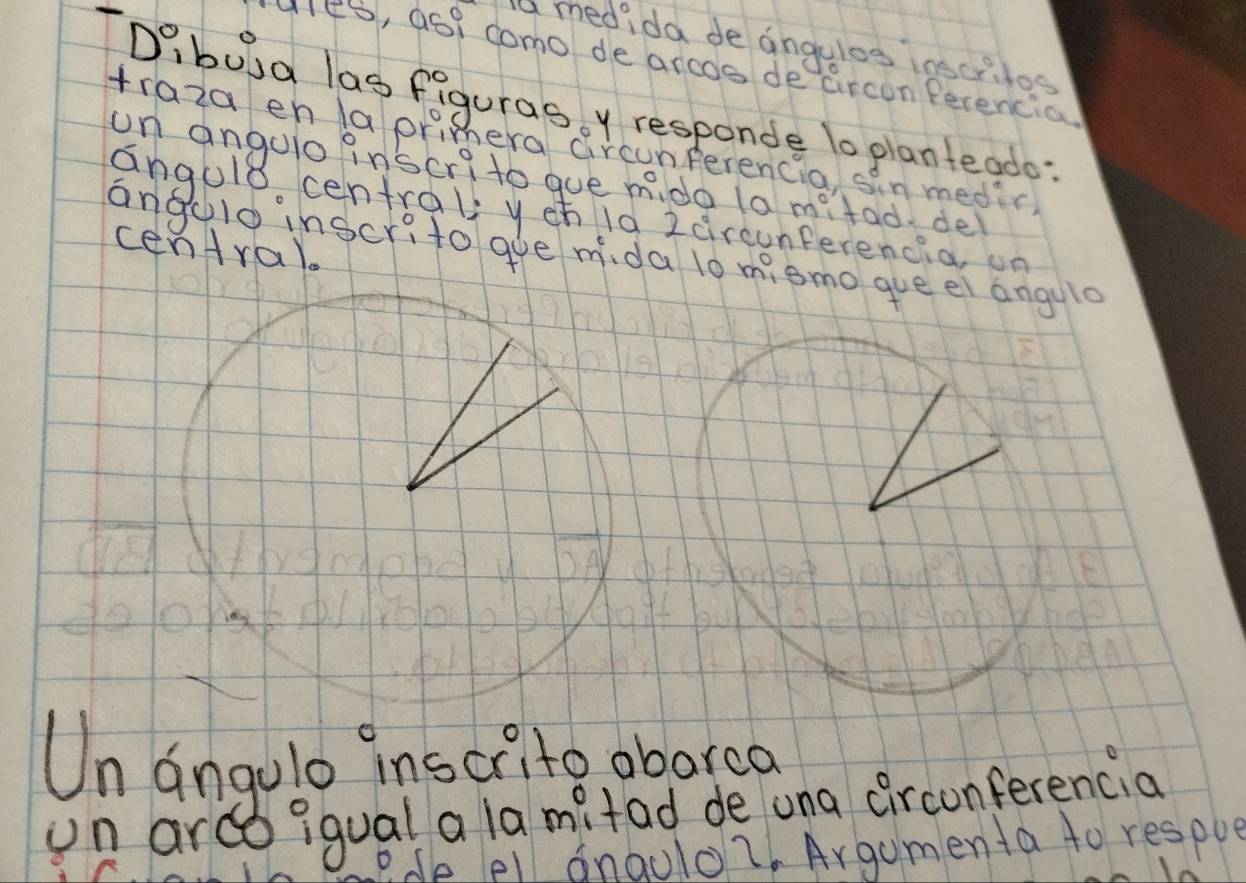 así como de arcos de circunferencia.
la medida de ángulos inscritos
-Dibuja las figuras y responde lo planteado:
traza en la primera circunferencia, sin medir,
un angulo inscrito que mida la mitad del
ángulo central y en la 2circunferencia un
ángulo inscrito que mida lo mismo que el ángulo
central.
Un ángulo inscrito abarca
un arco igual a la mitad de una circunferencia
mide el ángulo?. Argumenta tu respue